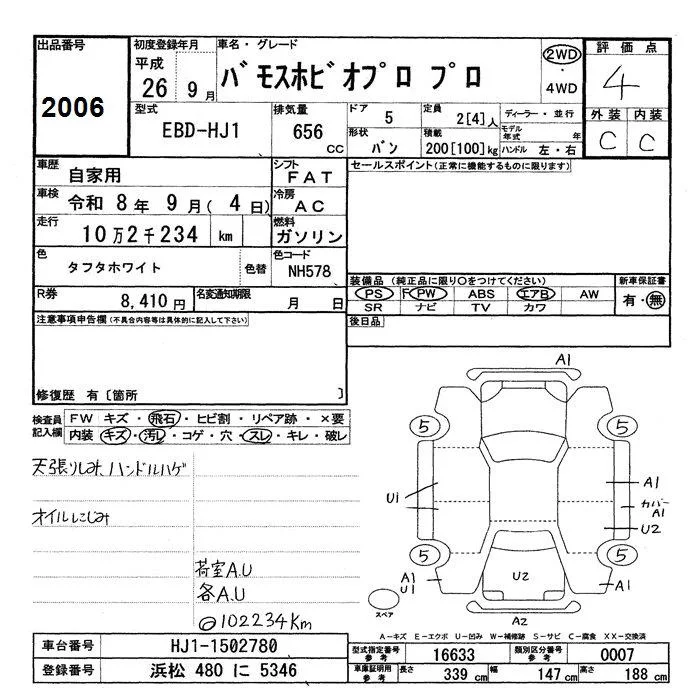 出品番号 初度登録年月 車名・グレード 評価点
2006 平成 26 9月 バモスホビオプロ プロ 2WD・4WD 4
型式 排気量 ドア 5 定員 2[4]人 ディーラー・並行 外装 内装
EBD-HJ1 656 cc 形状 バン 積載 200[100]kg モデル年式 年 ハンドル 左・右 C C
車歴 自家用 シフト FAT セールスポイント(正常に機能するものに限ります)
車検 令和 8年 9月( 4日) 冷房 AC
走行 10万2千234 km 燃料 ガソリン
色 タフタホワイト 色替 色コード NH578
装備品 (純正品に限り○をつけてください) 新車保証書
R券 8,410円 名変通知期限 月 日 PS PW ABS エアB AW 有・無
SR ナビ TV カワ
注意事項申告欄(不具合内容等は具体的に記入して下さい) 後日品
修復歴 有〔箇所 〕
検査員記入欄 FW キズ・飛石・ヒビ割・リペア跡・×要
内装 キズ・汚レ・コゲ・穴・スレ・キレ・破レ
天張りしみ、ハンドルハゲ
オイルにじみ
荷室A.U
各A.U
@102234Km
A1
5 5
A1
U1 カバーA1
U2
5 5
A1 U1 U2 A1
スペア A2
A-キズ E-エクボ U-凹み W-補修跡 S-サビ C-腐食 XX-交換済
車台番号 HJ1-1502780 型式指定番号 参考 16633 類別区分番号 参考 0007
登録番号 浜松 480 に 5346 車庫証明用 参考 長さ 339 cm 幅 147 cm 高さ 188 cm